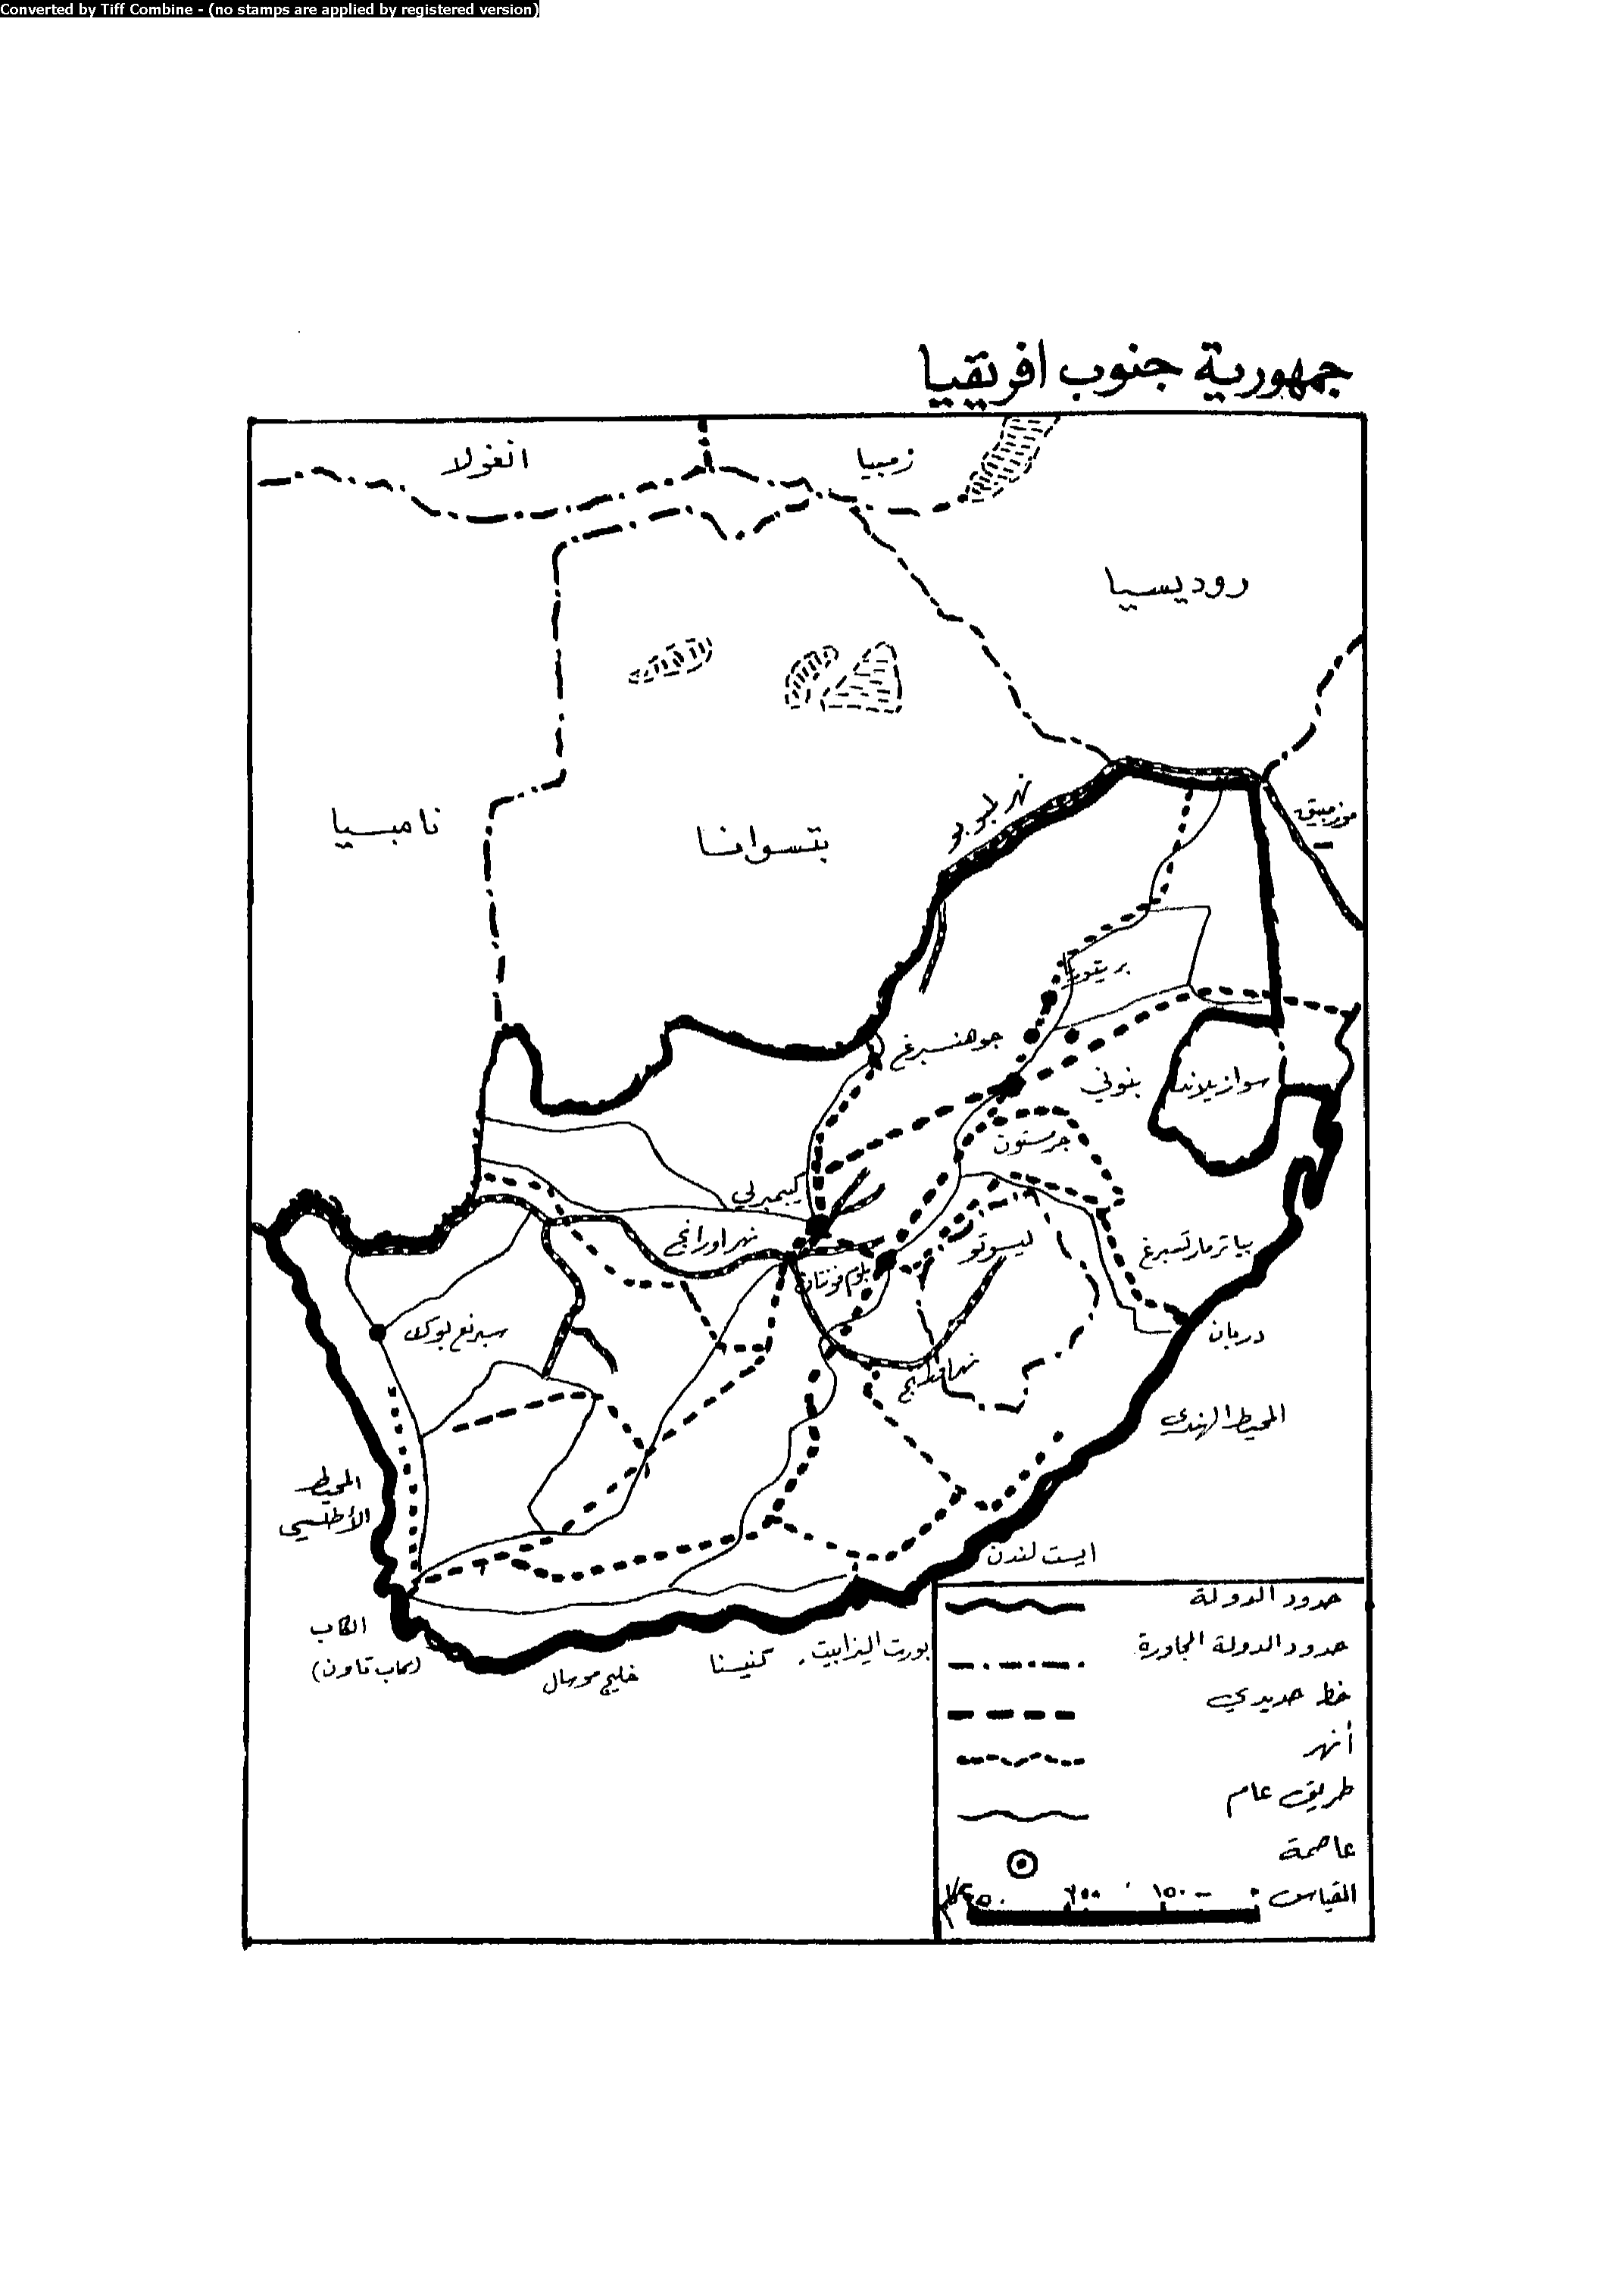 Converted by Tiff Combine - (no stamps are applied by registered version)
جمهورية جنوب افريقيا
انغولا
زمبيا
روديسيا
موزمبيق
نامبسيا
بتسوانا
نهر
بريتوريا
جوهنسبرغ
بنوني
سوازيلاندا
جرمستون
كيمبرلي
نهر اورانج
بلوم فونتان
ليسوتو
بياترمارتسبرغ
سبرنغ بوك
دربان
نهر
المحيط الهندي
المحيط
الأطلسي
ايست لندن
الكاب
(كاب تاون)
خليج موسال
كنيسنا
بورت اليزابيت
حدود الدولة
حدود الدولة المجاورة
خط حديدي
أنهر
طريق عام
عاصمة
القياس